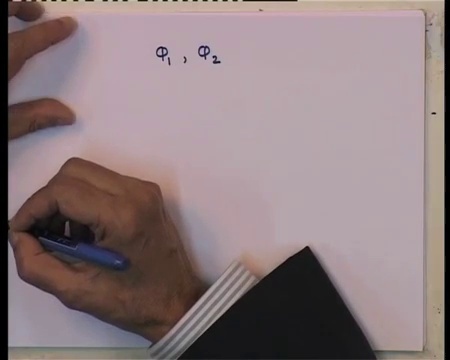 Φ₁, Φ₂